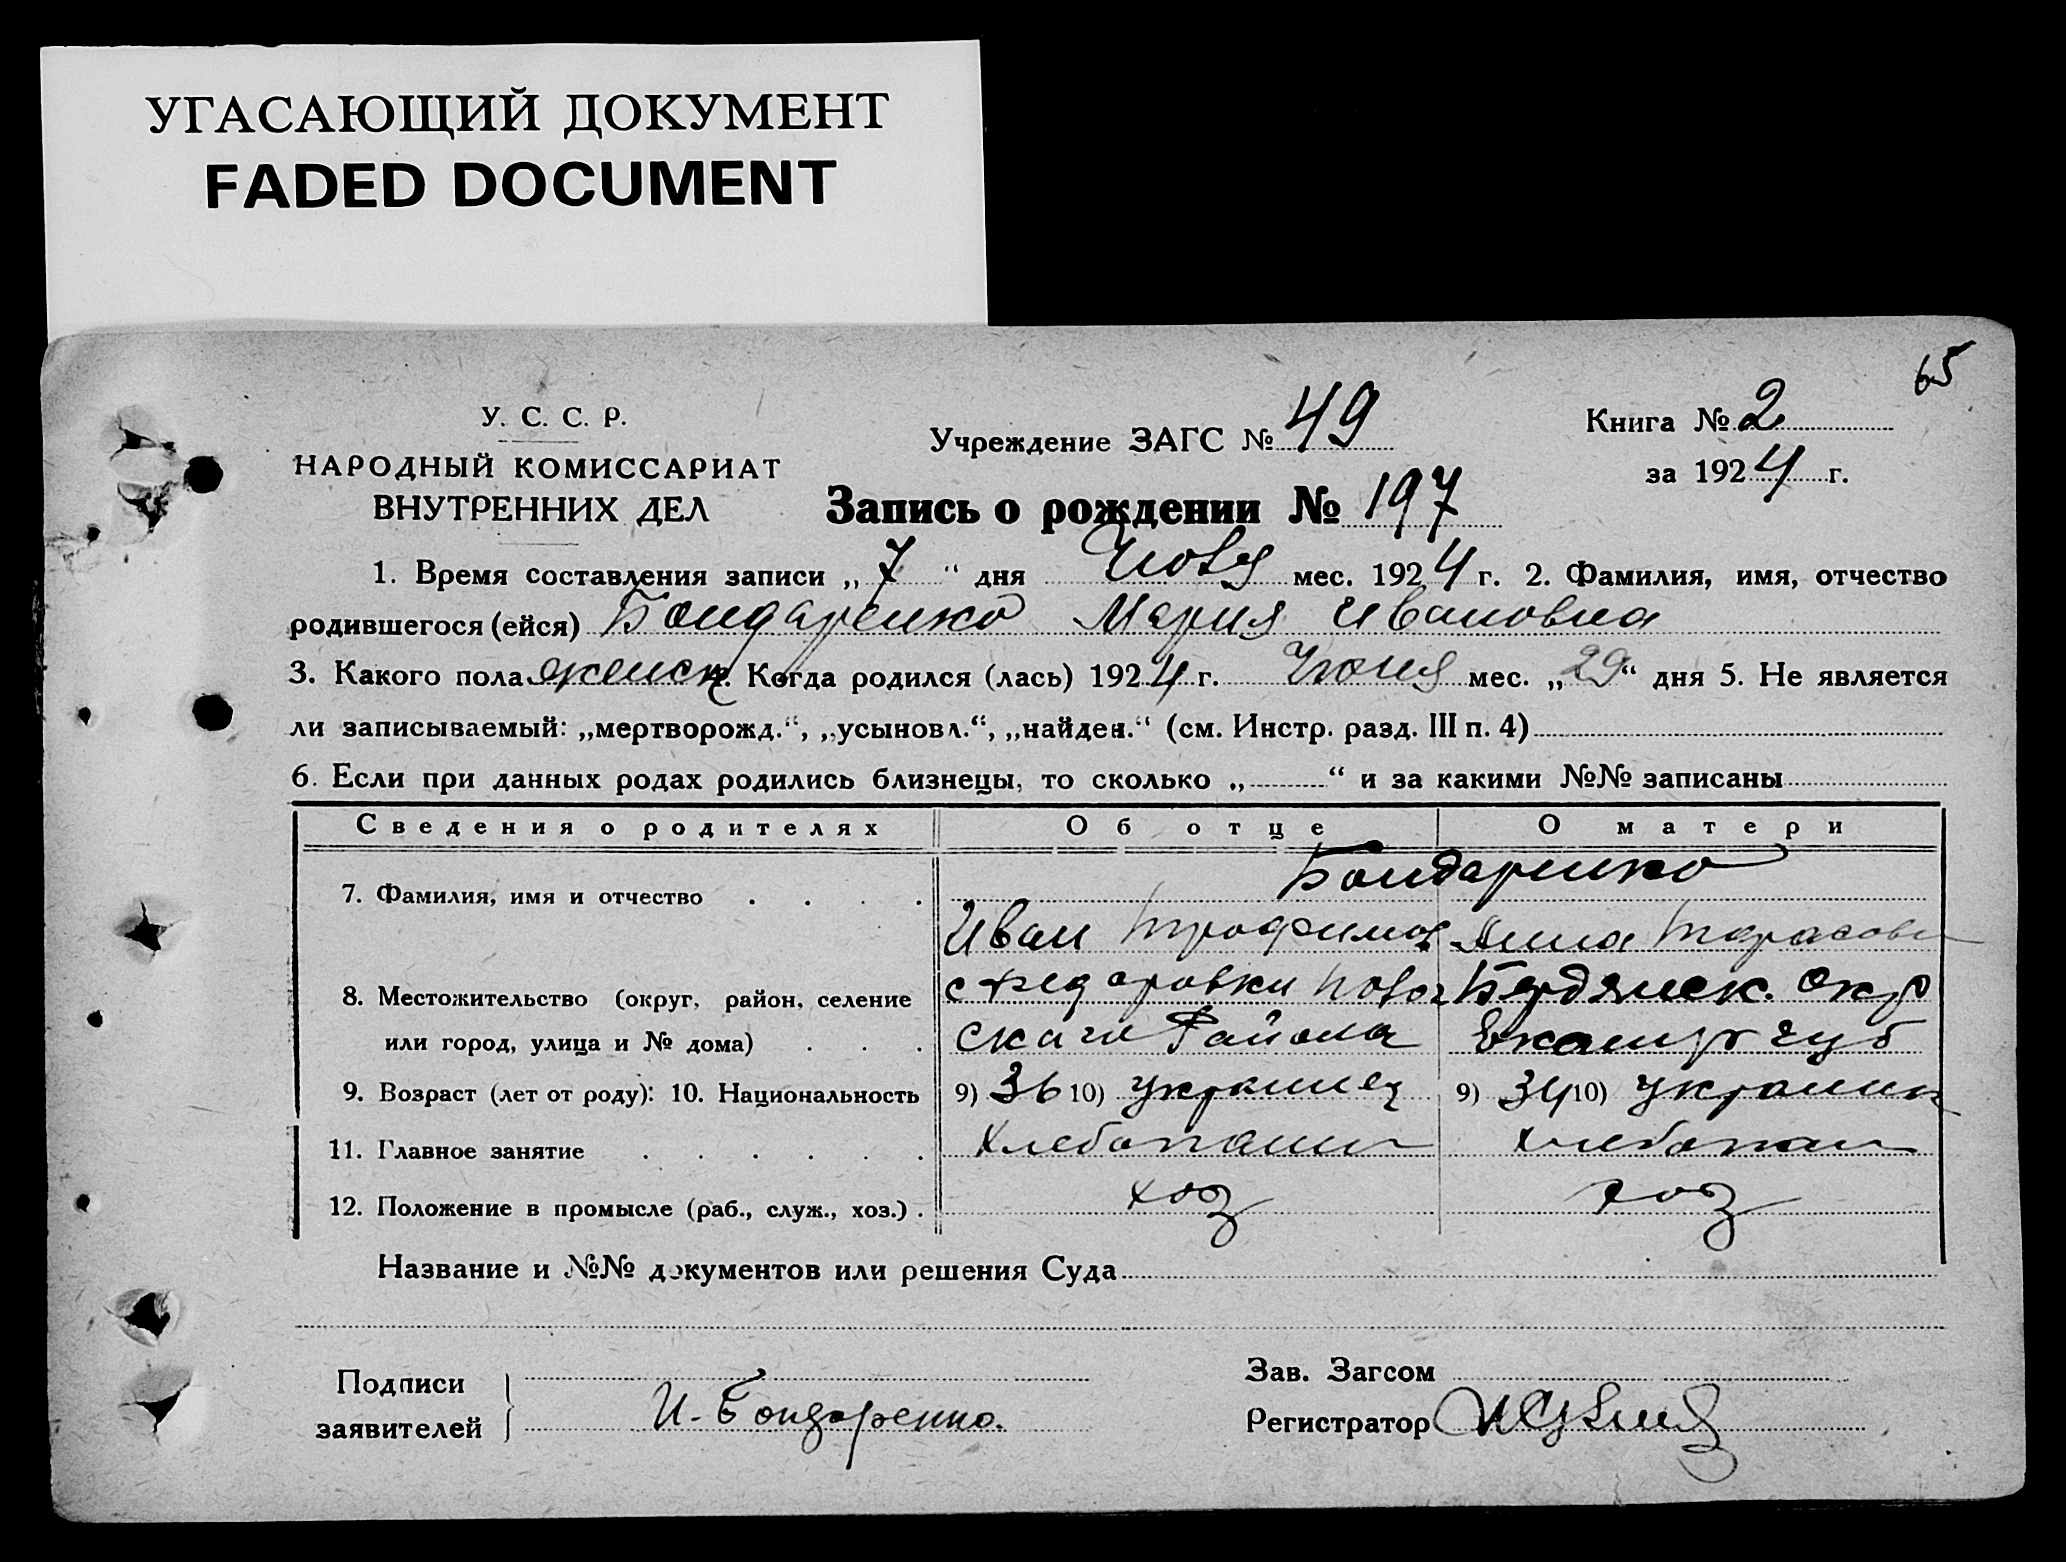 УГАСАЮЩИЙ ДОКУМЕНТ
FADED DOCUMENT
65
У. С. С. Р.
НАРОДНЫЙ КОМИССАРИАТ
ВНУТРЕННИХ ДЕЛ
Учреждение ЗАГС № 49
Книга № 2
за 1924 г.
Запись о рождении № 197
1. Время составления записи „7“ дня мес. 1924 г. 2. Фамилия, имя, отчество
родившегося (ейся) Бондаренко Мария Ивановна
3. Какого пола женск. Когда родился (лась) 1924 г. Июня мес. „29“ дня 5. Не является
ли записываемый: „мертворожд.“, „усыновл.“, „найден.“ (см. Инстр. разд. III п. 4)
6. Если при данных родах родились близнецы, то сколько „ “ и за какими №№ записаны
Сведения о родителях Об отце О матери
7. Фамилия, имя и отчество Бондаренко
Иван Трофимов Анна Тарасовн
8. Местожительство (округ, район, селение с Федоровки Бердянск. Окр
или город, улица и № дома) скаго Района Екатер губ
9. Возраст (лет от роду): 10. Национальность 9) 36 10) украинец 9) 34 10) украинк
11. Главное занятие Хлебопашец хлебопаш
12. Положение в промысле (раб., служ., хоз.) хоз хоз
Название и №№ документов или решения Суда
Подписи
заявителей И. Бондаренко.
Зав. Загсом
Регистратор